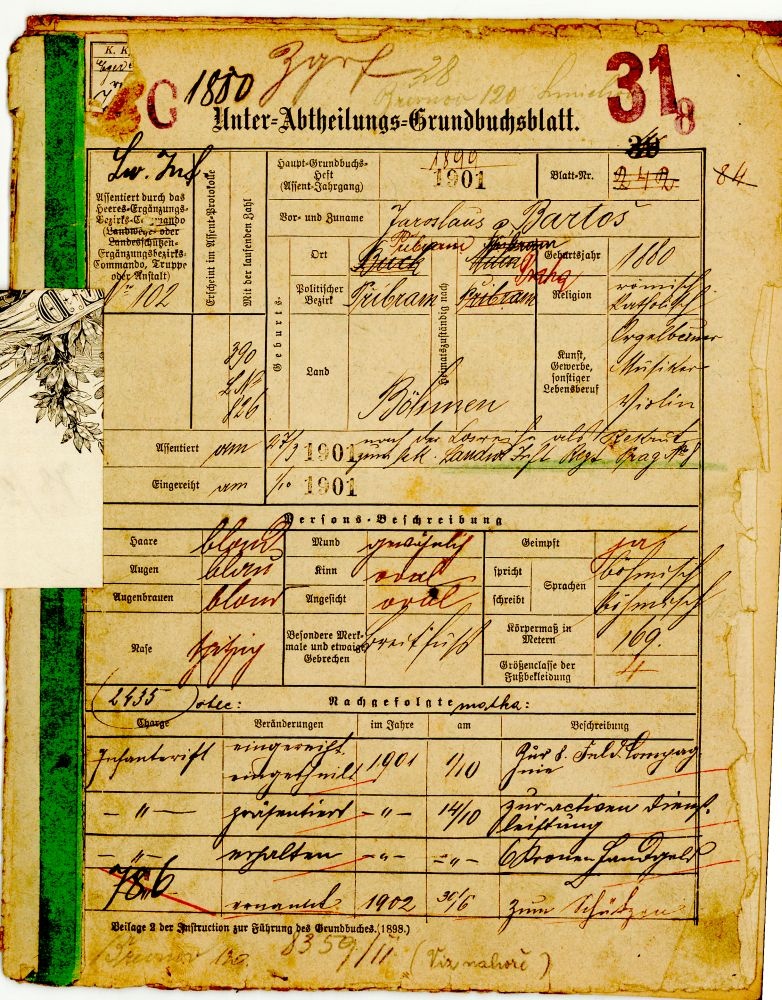 K. K.
C 1880
28
Břevnov 120
31
8
Unter-Abtheilungs-Grundbuchsblatt.
Lw. Inf
Assentiert durch das
Heeres-Ergänzungs-
Bezirks-Commando
(Landwehr- oder
Landesschützen-
Ergänzungsbezirks-
Commando, Truppe
oder Anstalt)
Nr 102
Erscheint im Assent-Protokolle
Mit der laufenden Zahl
390
826
Haupt-Grundbuchs-
Heft
(Assent-Jahrgang)
1899
1901
Blatt-Nr.
242
84
Vor- und Zuname
Jaroslaus Bartoš
Geburts-
Ort
Přibram
Heimatszuständig nach
Praha
Geburtsjahr
1880
Politischer
Bezirk
Přibram
Přibram
Religion
römisch
katholisch
Land
Böhmen
Kunst,
Gewerbe,
sonstiger
Lebensberuf
Musiker
Violin
Assentiert
am
27/3 1901
nach der Losreihe als Rekrut
zum kk. Landw Inft Regt Prag No 8
Eingereiht
am
1/10 1901
Persons-Beschreibung
Haare
blond
Mund
gewöhnlich
Geimpft
ja
Augen
blau
Kinn
oval
spricht
Sprachen
böhmisch
Augenbrauen
blond
Angesicht
oval
schreibt
böhmisch
Nase
spitzig
Besondere Merk-
male und etwaige
Gebrechen
breitfuß
Körpermaß in
Metern
169.
Größenclasse der
Fußbekleidung
4
2435
otec:
Nachgefolgte
matka:
Charge
Veränderungen
im Jahre
am
Beschreibung
Infanterist
eingereiht
eingetheilt
1901
1/10
Zur 8. Feld Compag-
nie
— " —
präsentiert
— " —
14/10
zur activen Dienst-
leistung
— " —
erhalten
— " —
— " —
6 Kronen Handgeld
786
ernannt
1902
30/6
zum Schützen
Beilage 2 der Instruction zur Führung des Grundbuches. (1898.)
Břevnov 120.
8359/II
(Viz nahoře)